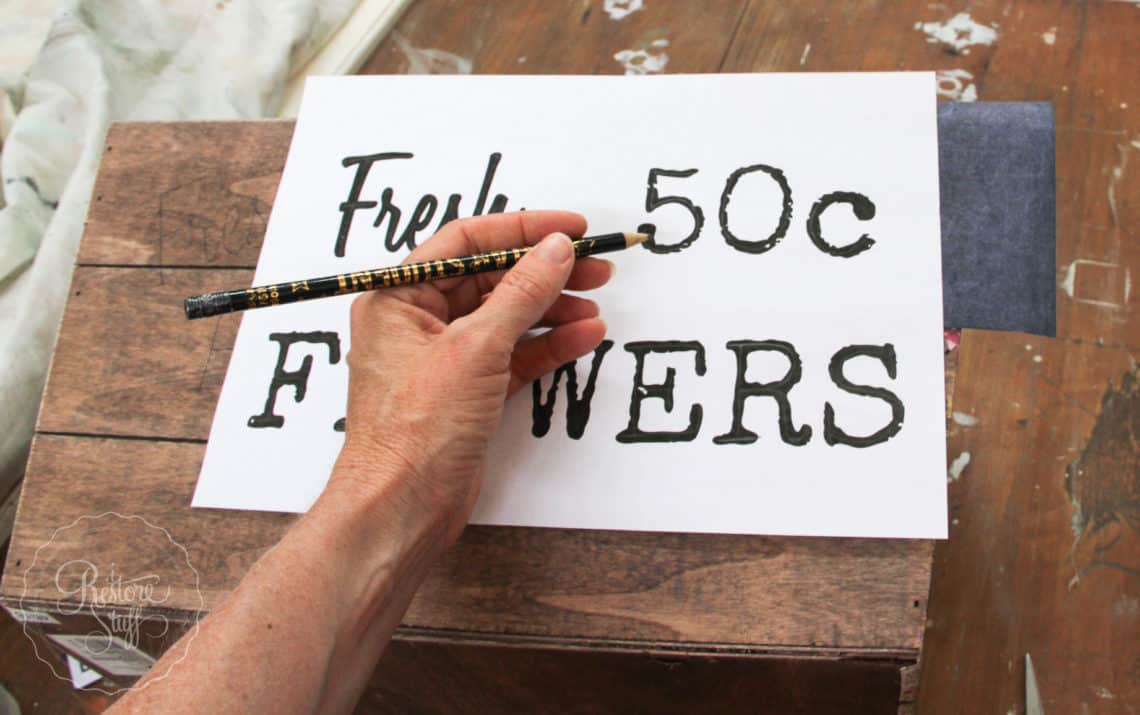 Fresh 50c
FLOWERS
I
Restore
Stuff